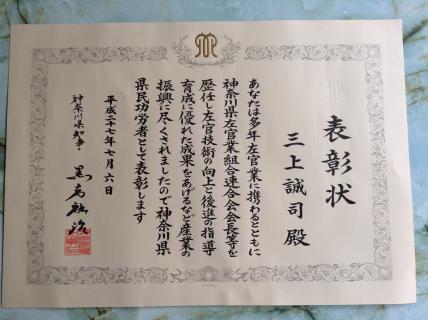 表彰状
三上誠司 殿
あなたは多年左官業に携わるとともに
神奈川県左官業組合連合会会長等を
歴任し左官技術の向上と後進の指導
育成に優れた成果をあげるなど産業の
振興に尽くされましたので神奈川県
県民功労者として表彰します
平成二十七年七月六日
神奈川県知事 黒岩祐治